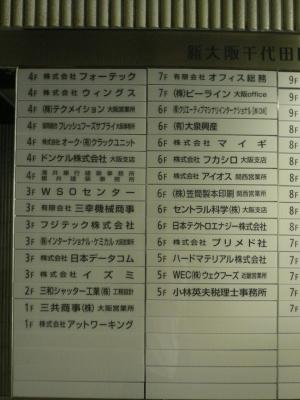 新大阪千代田
4F 株式会社フォーテック
4F 株式会社ウィングス
4F (株)テクメイション 大阪営業所
4F フレッシュフーズサプライ 大阪事務所
4F 株式会社オーク・(有)クラックユニット
4F ドンケル株式会社 大阪支店
4F
3F WSOセンター
3F 有限会社三幸機械商事
3F フジテック株式会社
3F ㈲インターナショナル・ケミカル 大阪営業所
3F 株式会社日本データコム
3F 株式会社イズミ
2F 三和シャッター工業(株)
1F 三共商事(株) 大阪営業所
1F 株式会社アットワーキング
7F 有限会社オフィス総務
7F (株)ビーライン 大阪office
6F
6F (有)大泉興産
6F 株式会社マイギ
6F 株式会社フカシロ 大阪支店
6F 株式会社アイオス 関西営業所
6F (株)笠間製本印刷 関西営業所
6F セントラル科学(株) 大阪支店
6F 日本テクトロエナジー株式会社
6F 株式会社プリメド社
5F ハードマテリアル株式会社
5F WEC(株)ウェクフーズ 近畿営業所
5F 小林英夫税理士事務所
9F
9F
9F
9F
8F
8F
8F
8F
8F
8F
7F
7F
7F
7F